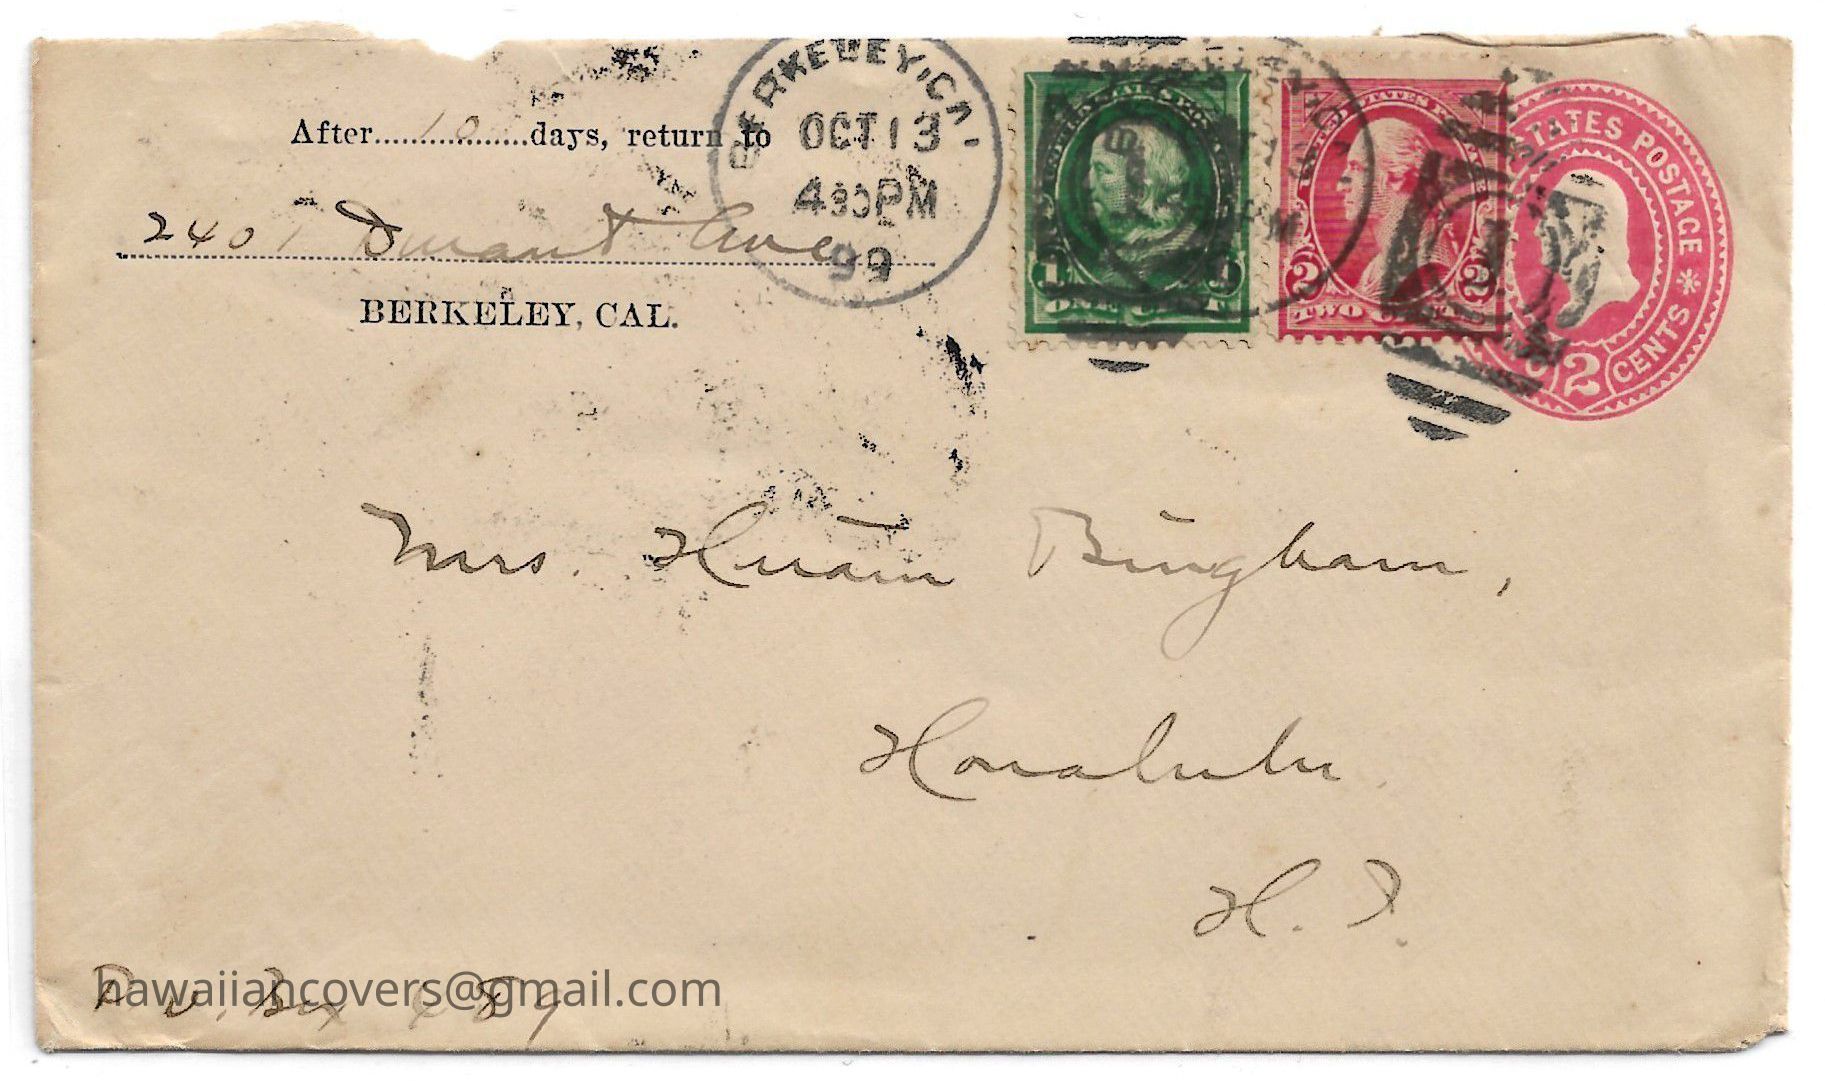 After 10 days, return to
2401 Durant Ave
BERKELEY, CAL.
BERKELEY, CAL.
OCT 13
430 PM
99
ONE CENT
1
UNITED STATES POSTAGE
TWO CENTS
2 2
STATES POSTAGE
2 CENTS
Mrs. Hiram Bingham,
Honolulu
H. I.
hawaiiancovers@gmail.com